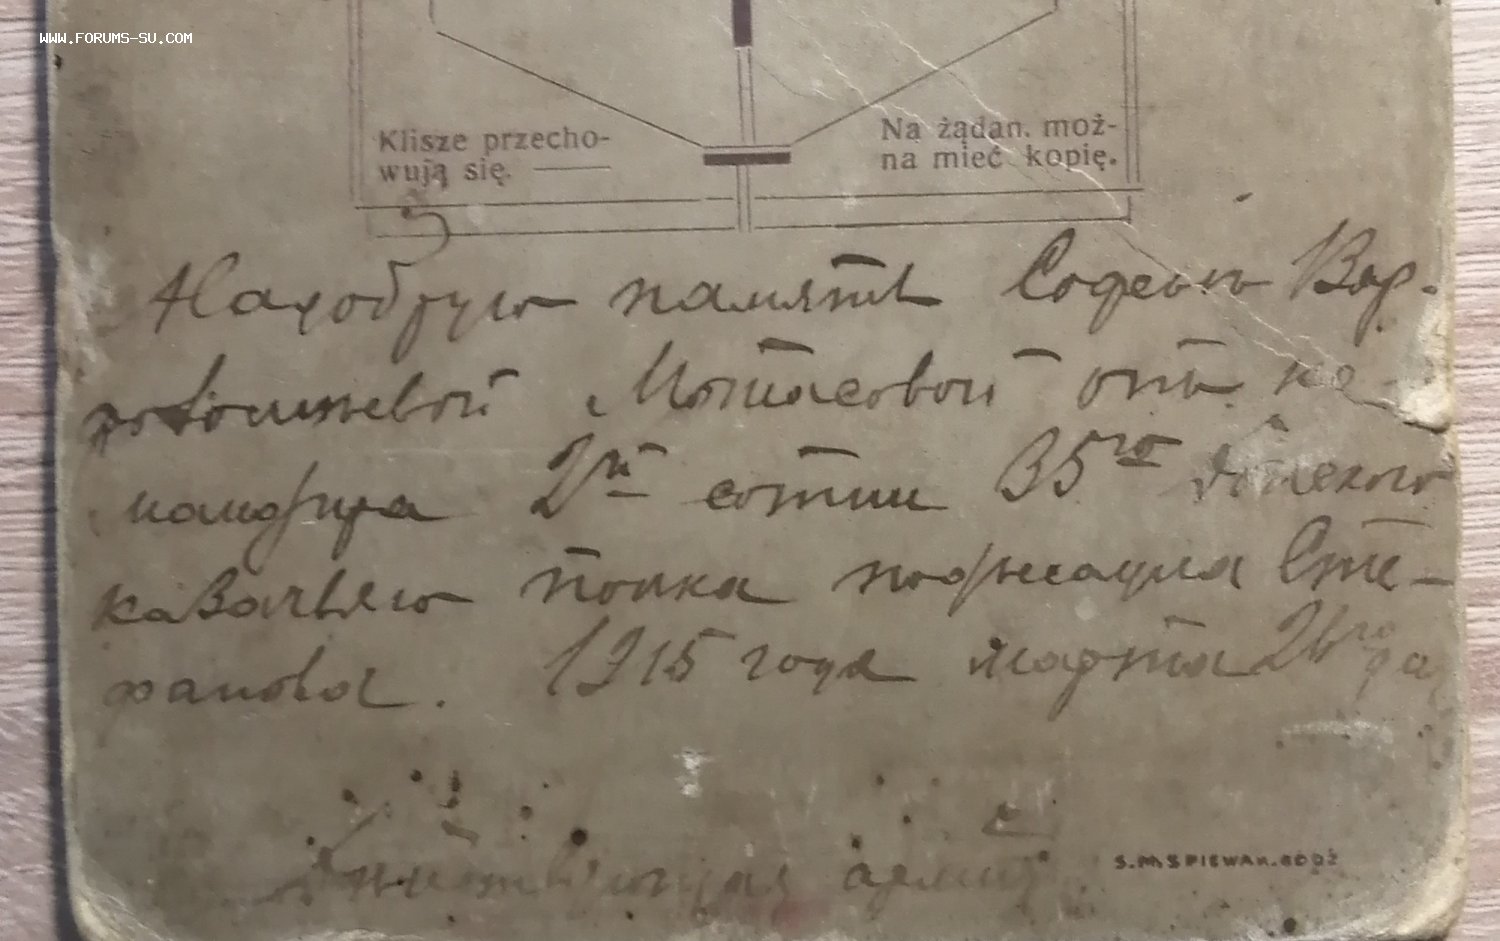 WWW.FORUMS-SU.COM
Klisze przecho-
wują się.
Na żądan. moż-
na mieć kopię.
На добрую память Софьи Вар-
Мотасовой отъ ко-
мандира 2й сотни 35го Донского
казачьяго полка подъесаула Сте-
фанова. 1915 года марта 26го дня
Действующая армия
S.M.SPIEWAK.ŁÓDŹ